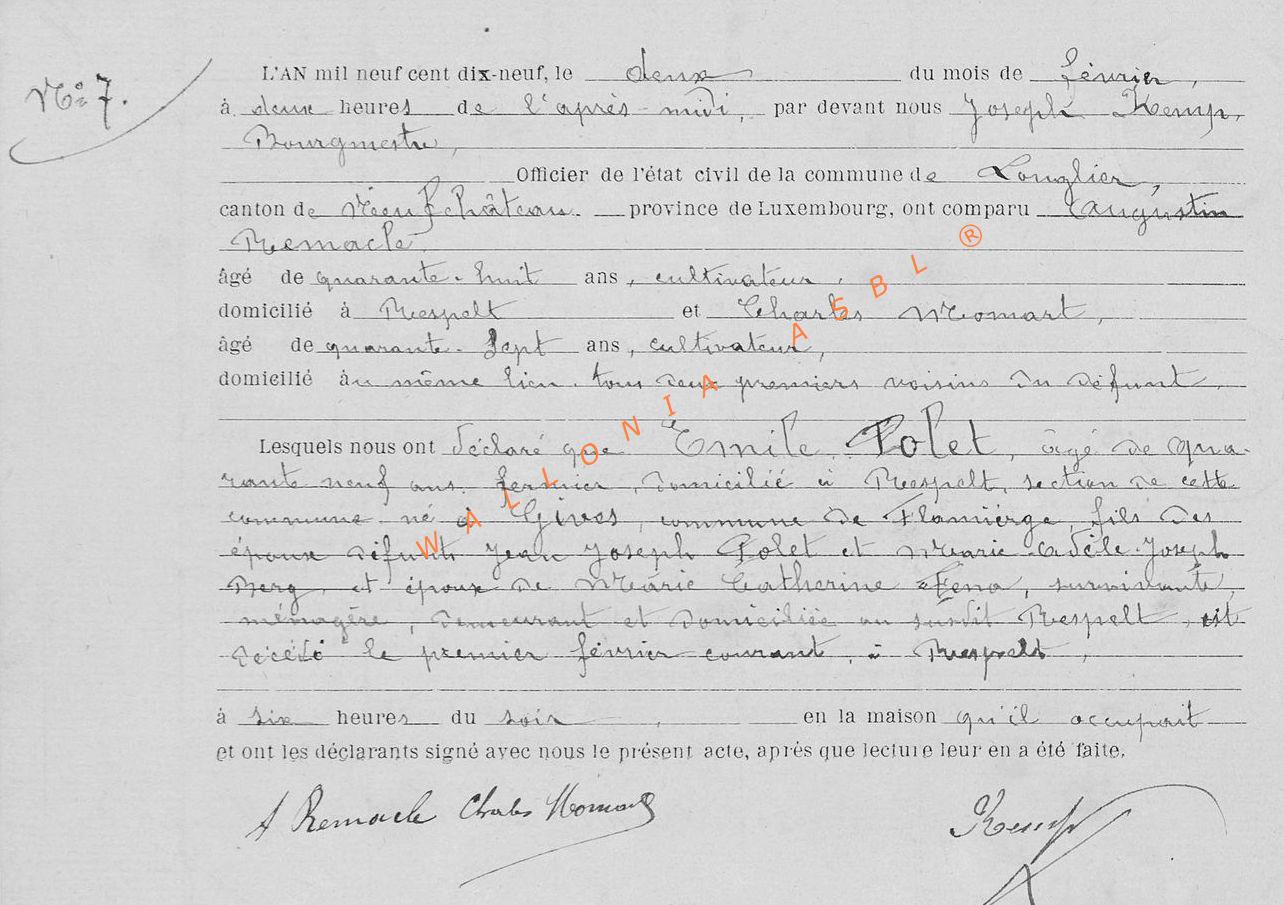 Nº 7.
L'AN mil neuf cent dix-neuf, le deux du mois de février,
à deux heures de l'après-midi, par devant nous Joseph Kemp,
Bourgmestre,
Officier de l'état civil de la commune de Longlier,
canton de Neufchâteau. province de Luxembourg, ont comparu Augustin
Remacle
âgé de quarante-huit ans, cultivateur,
domicilié à Respelt et Charles Momart,
âgé de quarante-sept ans, cultivateur,
domicilié au même lieu. tous deux premiers voisins du défunt,
Lesquels nous ont déclaré que Emile Polet, âgé de qua-
rante neuf ans. fermier, domicilié à Respelt, section de cette
commune né à Gives, commune de Flamierge, fils des
époux défunts Jean Joseph Polet et Marie-Adèle-Joseph
Berg et époux de Marie Catherine, survivante,
ménagère, demeurant et domiciliée au susdit Respelt, est
décédé le premier février courant, à Respelt,
à six heures du soir, en la maison qu'il occupait
et ont les déclarants signé avec nous le présent acte, après que lecture leur en a été faite.
A Remacle Charles Momart Kemp
WALLONIA ASBL ®